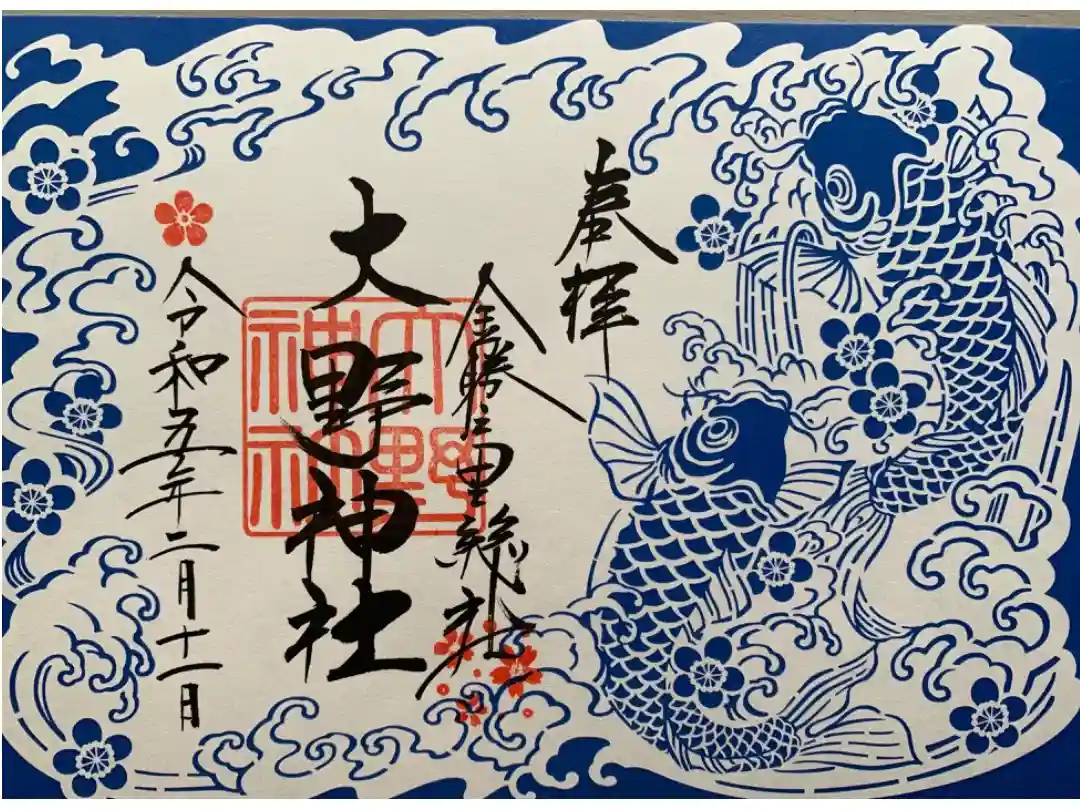 奉拝
金勝之里総社
大野神社
大野神社
令和五年二月十一日